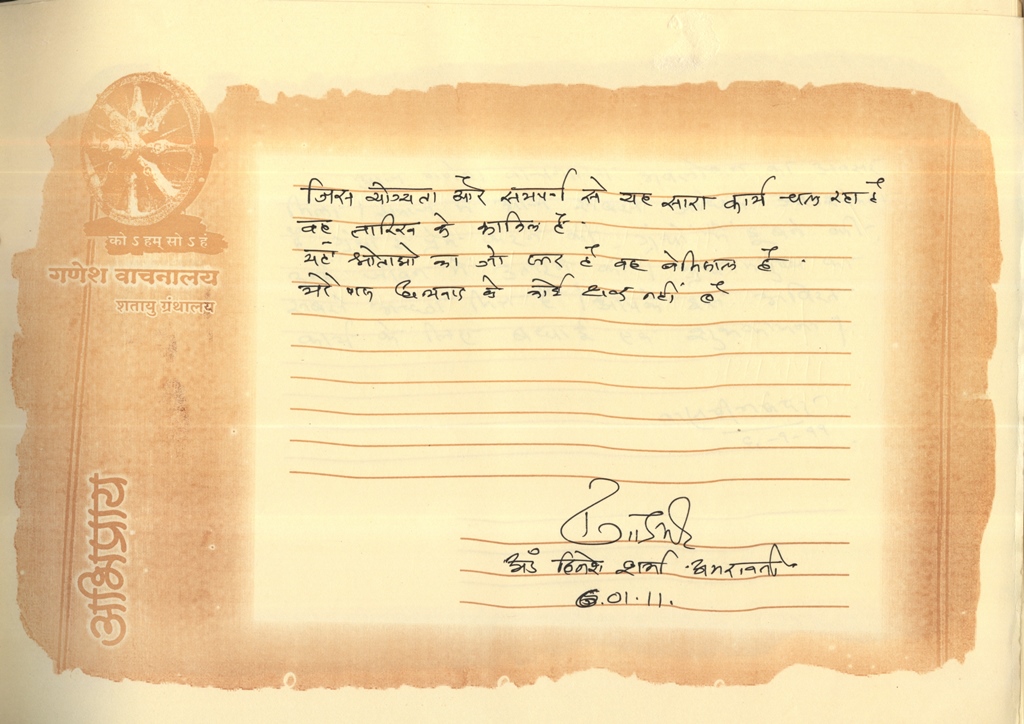 को ऽ हम् सो ऽ हं
गणेश वाचनालय
शतायु ग्रंथालय
अभिप्राय
जिस योग्यता और समर्पण से यह सारा कार्य चल रहा है
वह तारिफ के काबिल है.
यहाँ श्रोताओ का जो प्यार है वह बेमिसाल है.
मेरे पास धन्यवाद के कोई शब्द नहीं है
अ‍ॅड दिनेश शर्मा अमरावती
6.01.11.